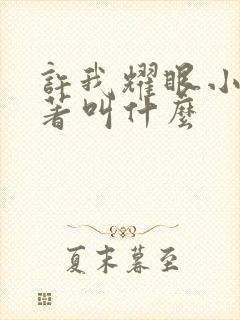 許我耀眼小
著叫什麼
夏末暮至